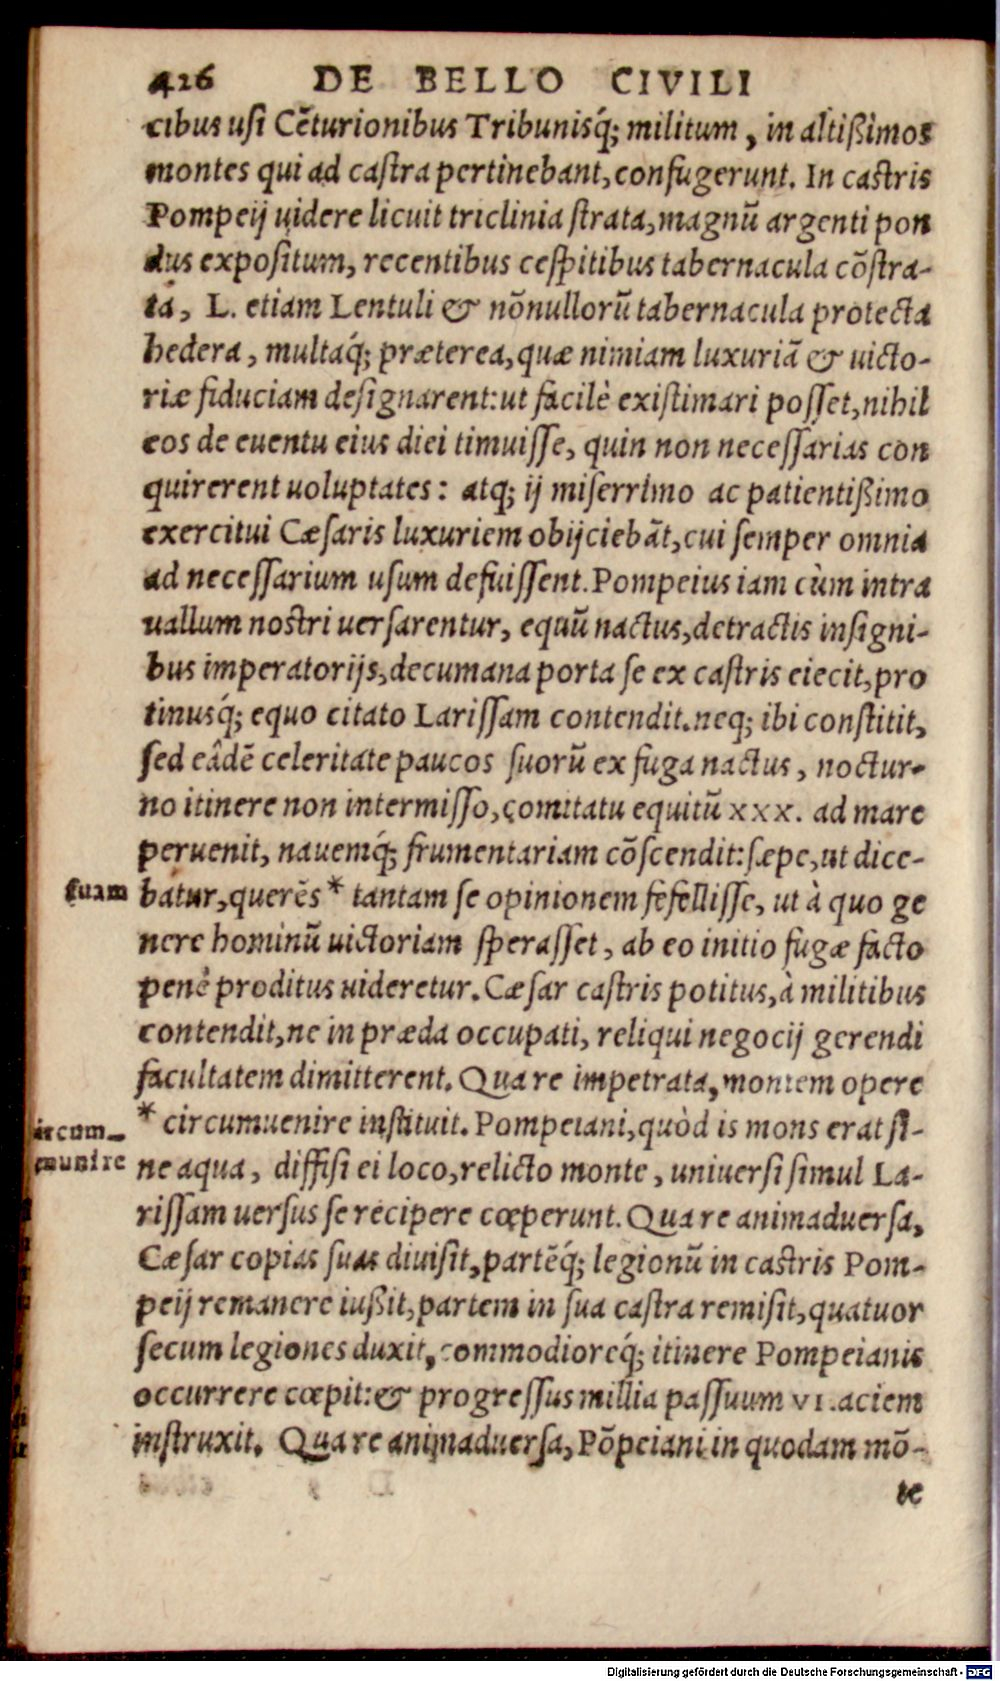 426 DE BELLO CIVILI
cibus usi Cēturionibus Tribunisq́; militum, in altißimos
montes qui ad castra pertinebant, confugerunt. In castris
Pompeij uidere licuit triclinia strata, magnū argenti pon
dus expositum, recentibus cespitibus tabernacula cōstra-
ta, L. etiam Lentuli & nōnullorū tabernacula protecta
hedera, multaq́; præterea, quæ nimiam luxuriā & uicto-
riæ fiduciam designarent: ut facilè existimari posset, nihil
eos de euentu eius diei timuisse, quin non necessarias con
quirerent uoluptates: atq; ij miserrimo ac patientißimo
exercitui Cæsaris luxuriem obijciebāt, cui semper omnia
ad necessarium usum defuissent. Pompeius iam cùm intra
uallum nostri uersarentur, equū nactus, detractis insigni-
bus imperatorijs, decumana porta se ex castris eiecit, pro
tinusq́; equo citato Larissam contendit. neq; ibi constitit,
sed eâdē celeritate paucos suorū ex fuga nactus, noctur-
no itinere non intermisso, comitatu equitū xxx. ad mare
peruenit, nauemq́; frumentariam cōscendit: sæpe, ut dice-
suam batur, querēs * tantam se opinionem fefellisse, ut à quo ge
nere hominū uictoriam sperasset, ab eo initio fugæ facto
penè proditus uideretur. Cæsar castris potitus, à militibus
contendit, ne in præda occupati, reliqui negocij gerendi
facultatem dimitterent. Qua re impetrata, montem opere
ircum- * circumuenire instituit. Pompeiani, quòd is mons erat si-
munire ne aqua, diffisi ei loco, relicto monte, uniuersi simul La-
rissam uersus se recipere cœperunt. Qua re animaduersa,
Cæsar copias suas diuisit, partēq́; legionū in castris Pom-
peij remanere iußit, partem in sua castra remisit, quatuor
secum legiones duxit, commodioreq́; itinere Pompeianis
occurrere cœpit: & progressus millia passuum vi. aciem
instruxit. Qua re animaduersa, Pōpeiani in quodam mō-
te
Digitalisierung gefördert durch die Deutsche Forschungsgemeinschaft - DFG